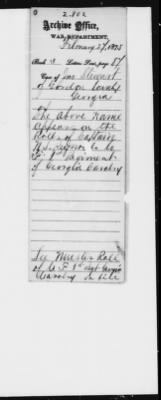 2.802
Archive Office,
WAR DEPARTMENT,
February 27, 1875
Book 3 Letters Rec'd, page 57
Case of Jas Stewart
of Gordon County
Georgia
The above name
appears on the
Roll of Captain
Co
F. 1st Regiment
of Georgia Cavalry
See Muster Roll
of Co F 1st Regt Georgia
Cavalry on file